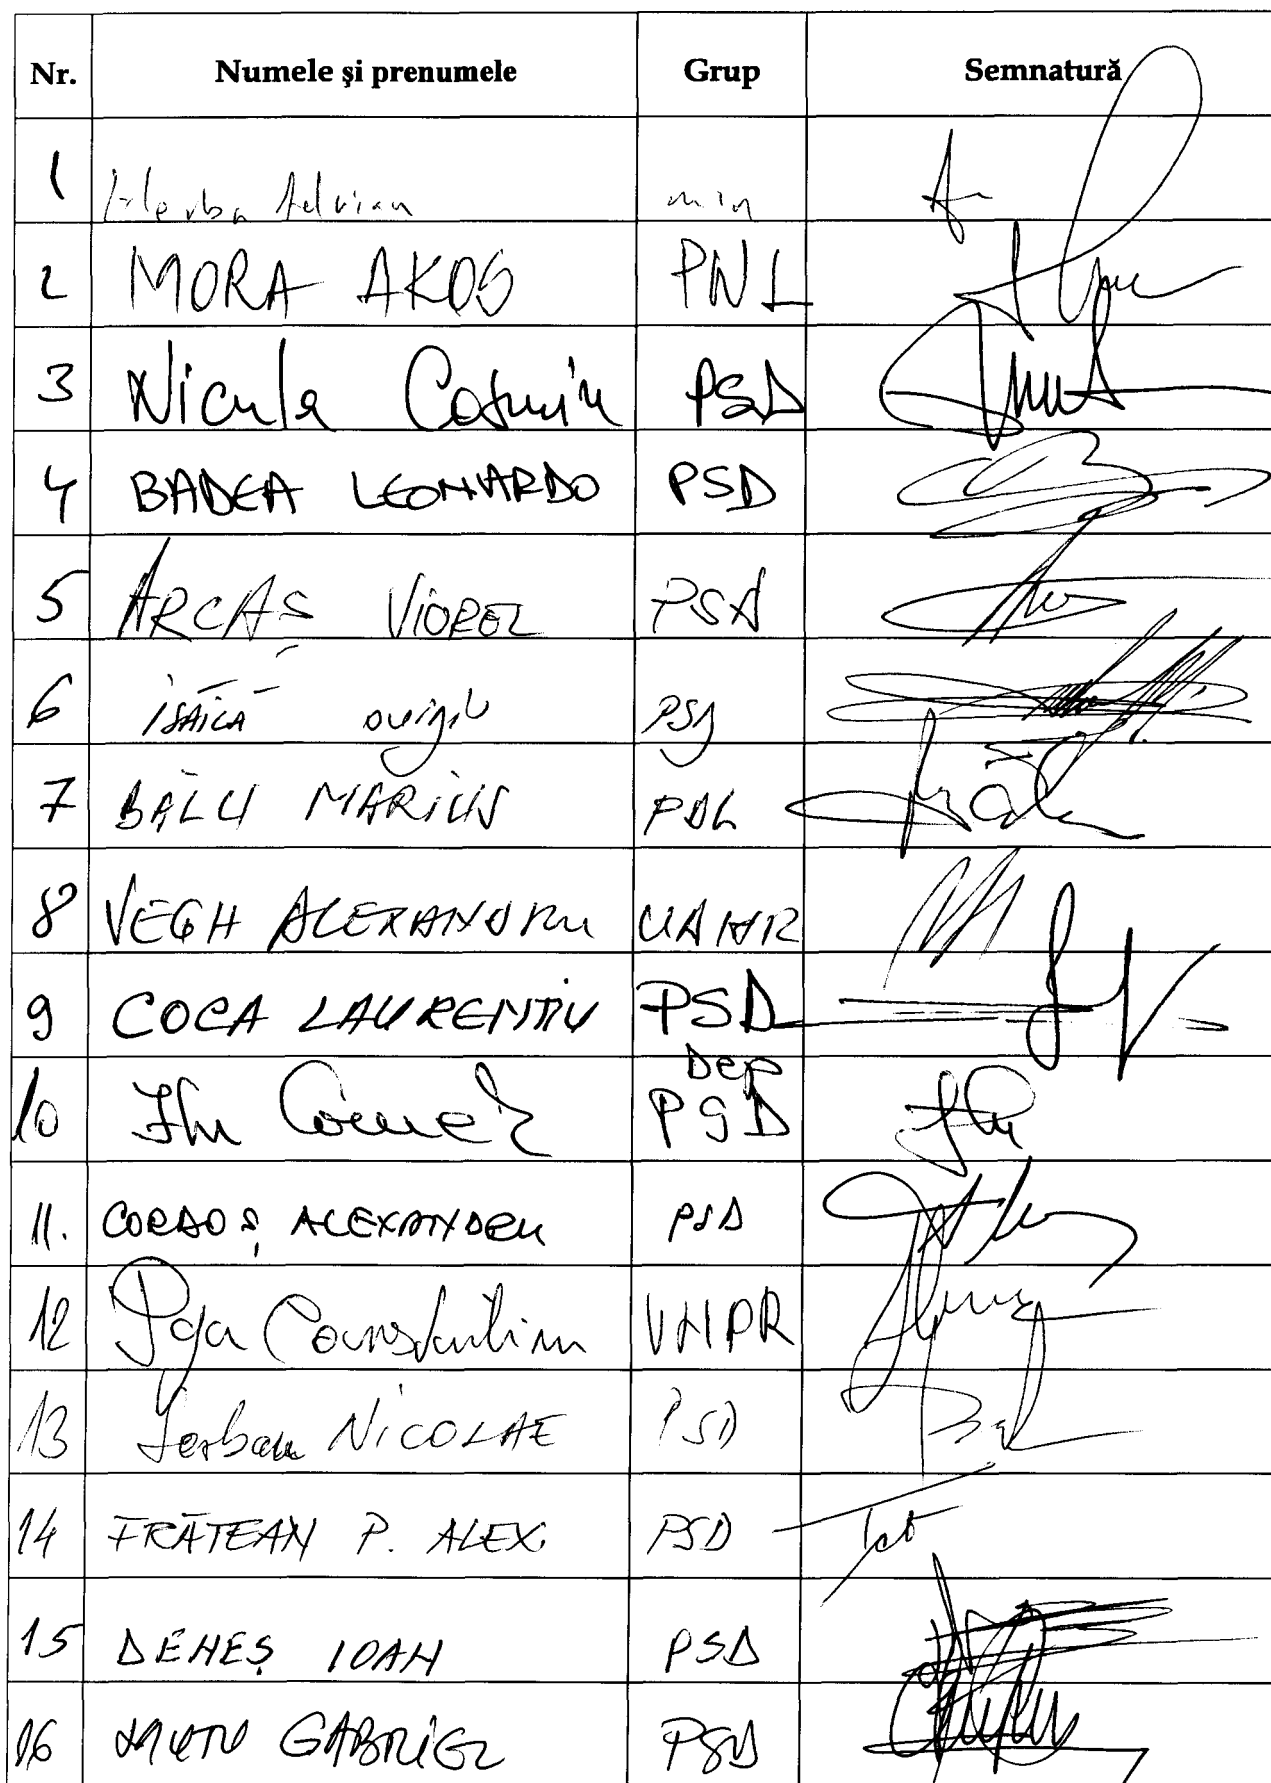 Nr. Numele și prenumele Grup Semnatură
1 Adrian min
2 MORA AKOS PNL
3 Nicula Cosmin PSD
4 BADEA LEONARDO PSD
5 ARCAȘ VIOREL PSD
6 ISĂILĂ PSD
7 BÂLU MARIUS PDL
8 VEGH ALEXANDRU UDMR
9 COCA LAURENȚIU PSD
Dep
10 Itu Cornel PSD
11. CORDOȘ ALEXANDRU PSD
12 Popa Constantin UNPR
13 Șerban NICOLAE PSD
14 FRĂTEAN P. ALEX. PSD
15 DENEȘ IOAN PSD
16 MUTU GABRIEL PSD